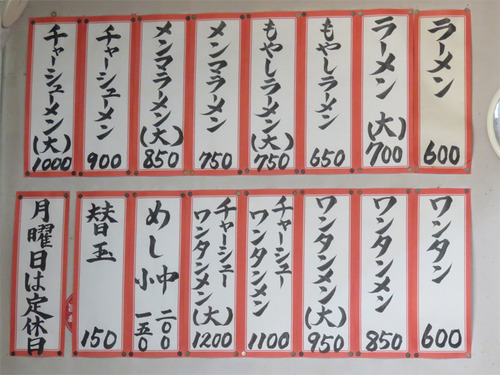 ラーメン 600
ラーメン(大) 700
もやしラーメン 650
もやしラーメン(大) 750
メンマラーメン 750
メンマラーメン(大) 850
チャーシューメン 900
チャーシューメン(大) 1000
ワンタン 600
ワンタンメン 850
ワンタンメン(大) 950
チャーシュー
ワンタンメン 1100
チャーシュー
ワンタンメン(大) 1200
めし 中 二〇〇
小 一五〇
替玉 150
月曜日は定休日